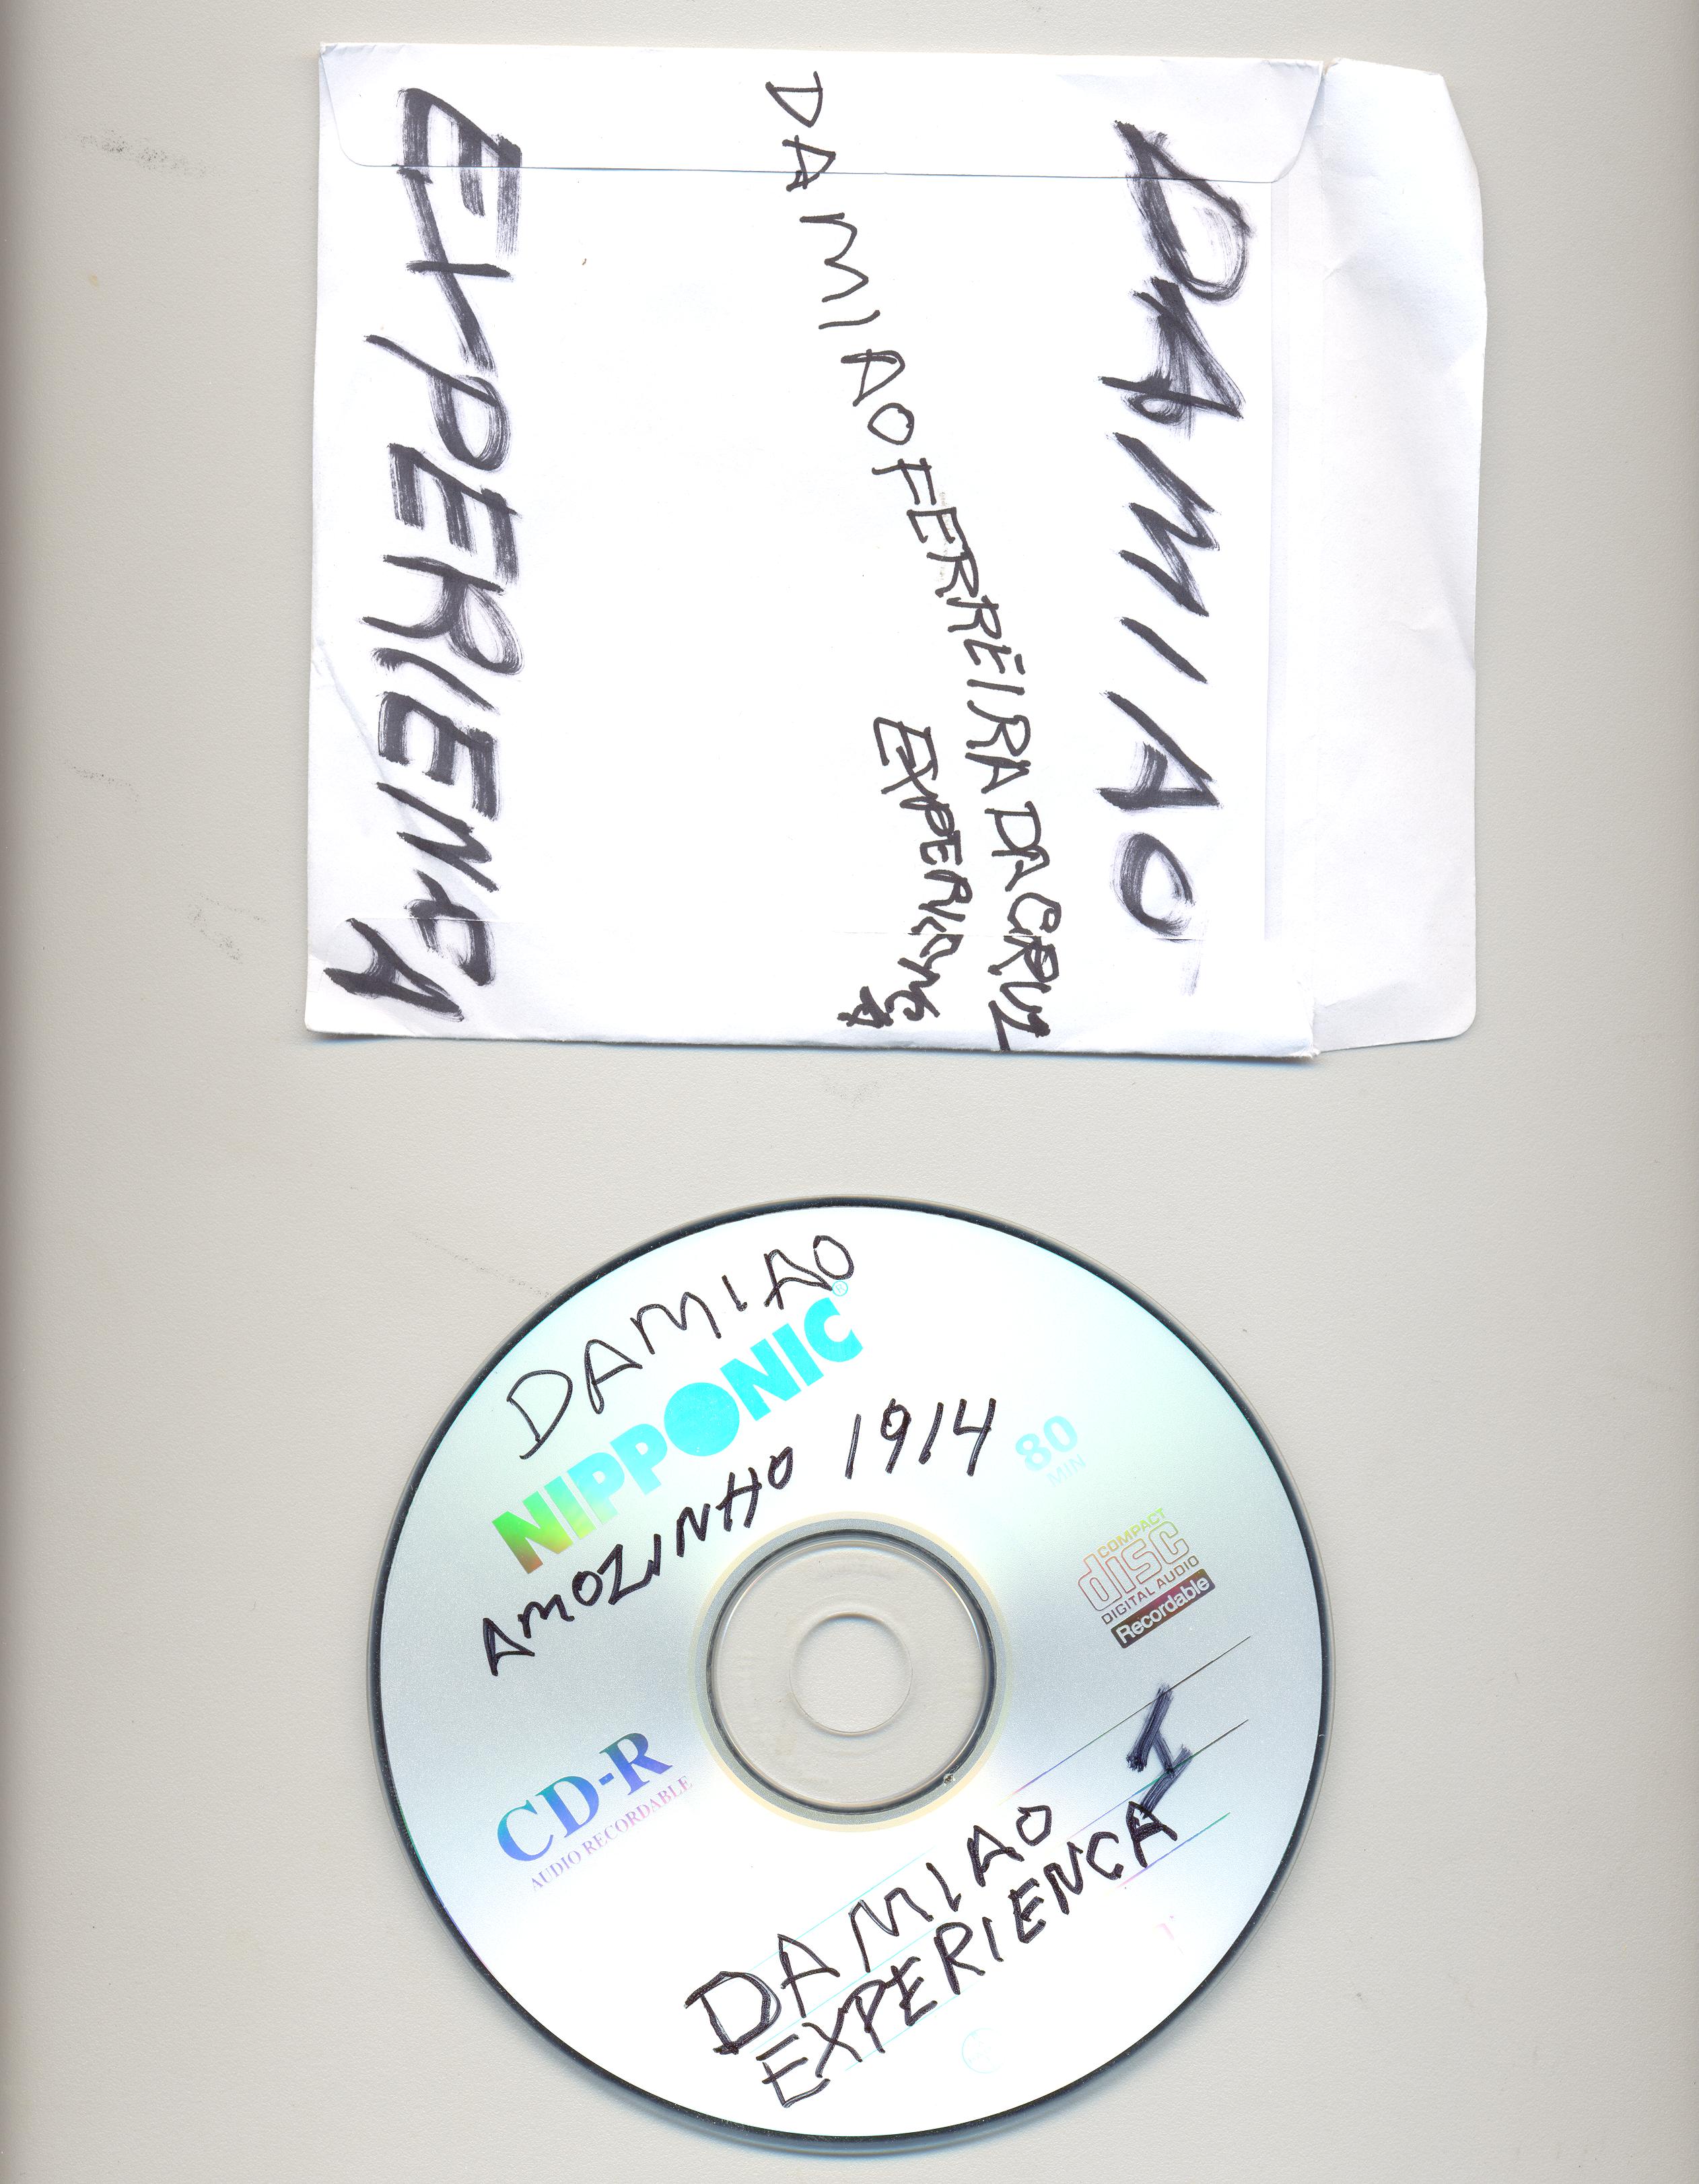 DAMIAO
DAMIAO FERREIRA DA CRUZ
EXPERIENCA
EXPERIENCA
DAMIAO
NIPPONIC®
AMOZINHO 1914
80
MIN
COMPACT
disc
DIGITAL AUDIO
Recordable
CD-R
AUDIO RECORDABLE
I
DAMIAO
EXPERIENCA